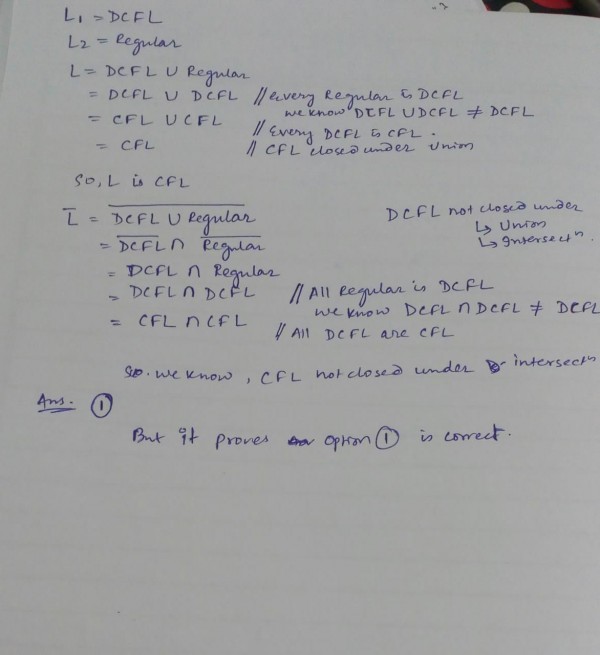 L₁ = DCFL
L₂ = Regular
L = DCFL ∪ Regular
= DCFL ∪ DCFL // Every Regular is DCFL
we know DCFL ∪ DCFL ≠ DCFL
= CFL ∪ CFL // Every DCFL is CFL.
= CFL // CFL closed under Union
So, L is CFL
L̅ = \overline{DCFL ∪ Regular}
DCFL not closed under
↳ Union
↳ Intersectⁿ.
= \overline{DCFL} ∩ \overline{Regular}
= DCFL ∩ Regular
= DCFL ∩ DCFL // All Regular is DCFL
we know DCFL ∩ DCFL ≠ DCFL
= CFL ∩ CFL // All DCFL are CFL
so. we know, CFL not closed under intersectⁿ
Ans. ①
But it proves option ① is correct.